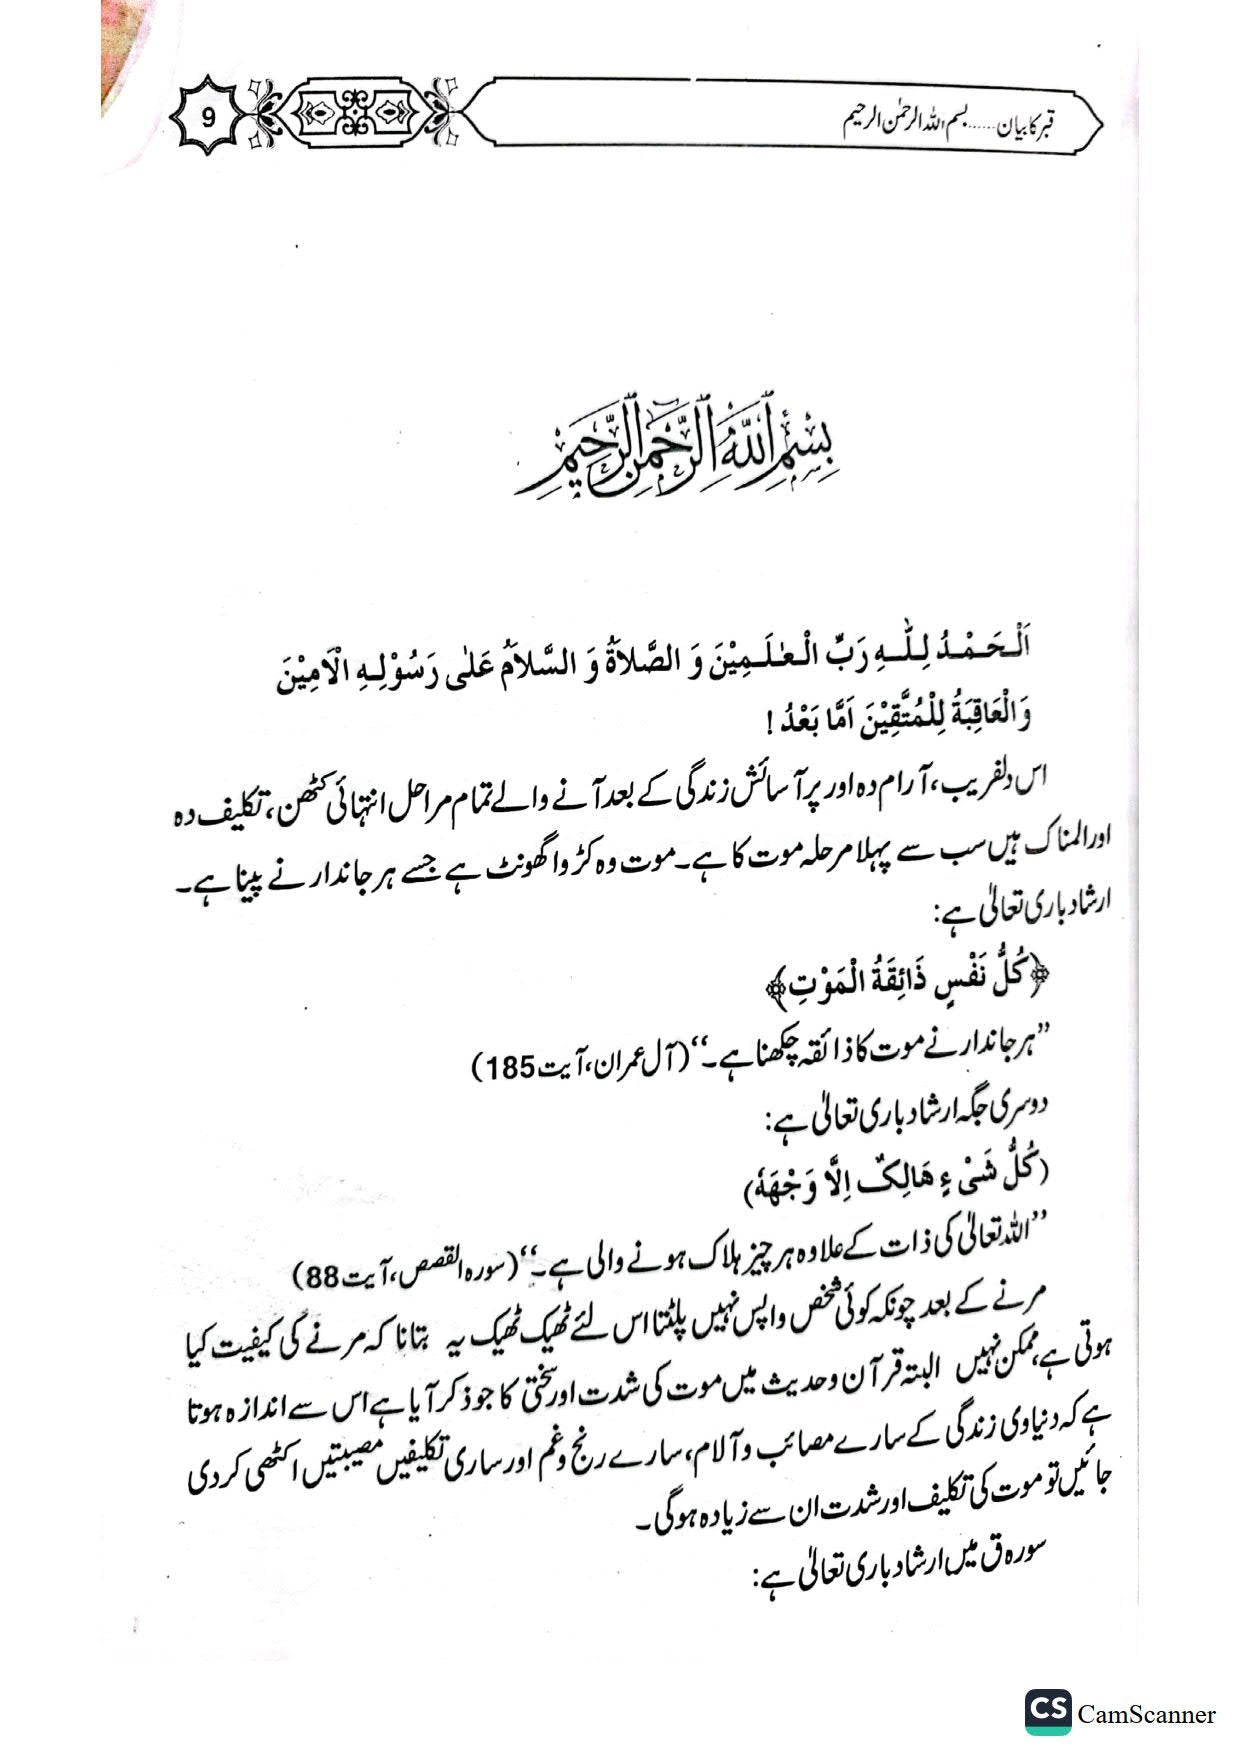 قبر کا بیان......بسم اللہ الرحمٰن الرحیم
9
بِسْمِ اللّٰهِ الرَّحْمٰنِ الرَّحِيْمِ
اَلْحَمْدُ لِلّٰهِ رَبِّ الْعٰلَمِيْنَ وَ الصَّلاَةُ وَ السَّلاَمُ عَلٰى رَسُوْلِهِ الْاَمِيْنَ
وَالْعَاقِبَةُ لِلْمُتَّقِيْنَ اَمَّا بَعْدُ !
اس دلفریب، آرام دہ اور پر آسائش زندگی کے بعد آنے والے تمام مراحل انتہائی کٹھن، تکلیف دہ
اور المناک ہیں سب سے پہلا مرحلہ موت کا ہے۔ موت وہ کڑوا گھونٹ ہے جسے ہر جاندار نے پینا ہے۔
ارشاد باری تعالیٰ ہے:
﴿كُلُّ نَفْسٍ ذَائِقَةُ الْمَوْتِ﴾
”ہر جاندار نے موت کا ذائقہ چکھنا ہے۔“ (آل عمران، آیت 185)
دوسری جگہ ارشاد باری تعالیٰ ہے:
(كُلُّ شَیْءٍ هَالِکٌ اِلَّا وَجْهَهٗ)
”اللہ تعالیٰ کی ذات کے علاوہ ہر چیز ہلاک ہونے والی ہے۔“ (سورہ القصص، آیت 88)
مرنے کے بعد چونکہ کوئی شخص واپس نہیں پلٹتا اس لئے ٹھیک ٹھیک یہ بتانا کہ مرنے کی کیفیت کیا
ہوتی ہے، ممکن نہیں البتہ قرآن وحدیث میں موت کی شدت اور سختی کا جو ذکر آیا ہے اس سے اندازہ ہوتا
ہے کہ دنیاوی زندگی کے سارے مصائب و آلام، سارے رنج و غم اور ساری تکلیفیں مصیبتیں اکٹھی کر دی
جائیں تو موت کی تکلیف اور شدت ان سے زیادہ ہوگی۔
سورہ ق میں ارشاد باری تعالیٰ ہے:
CS CamScanner